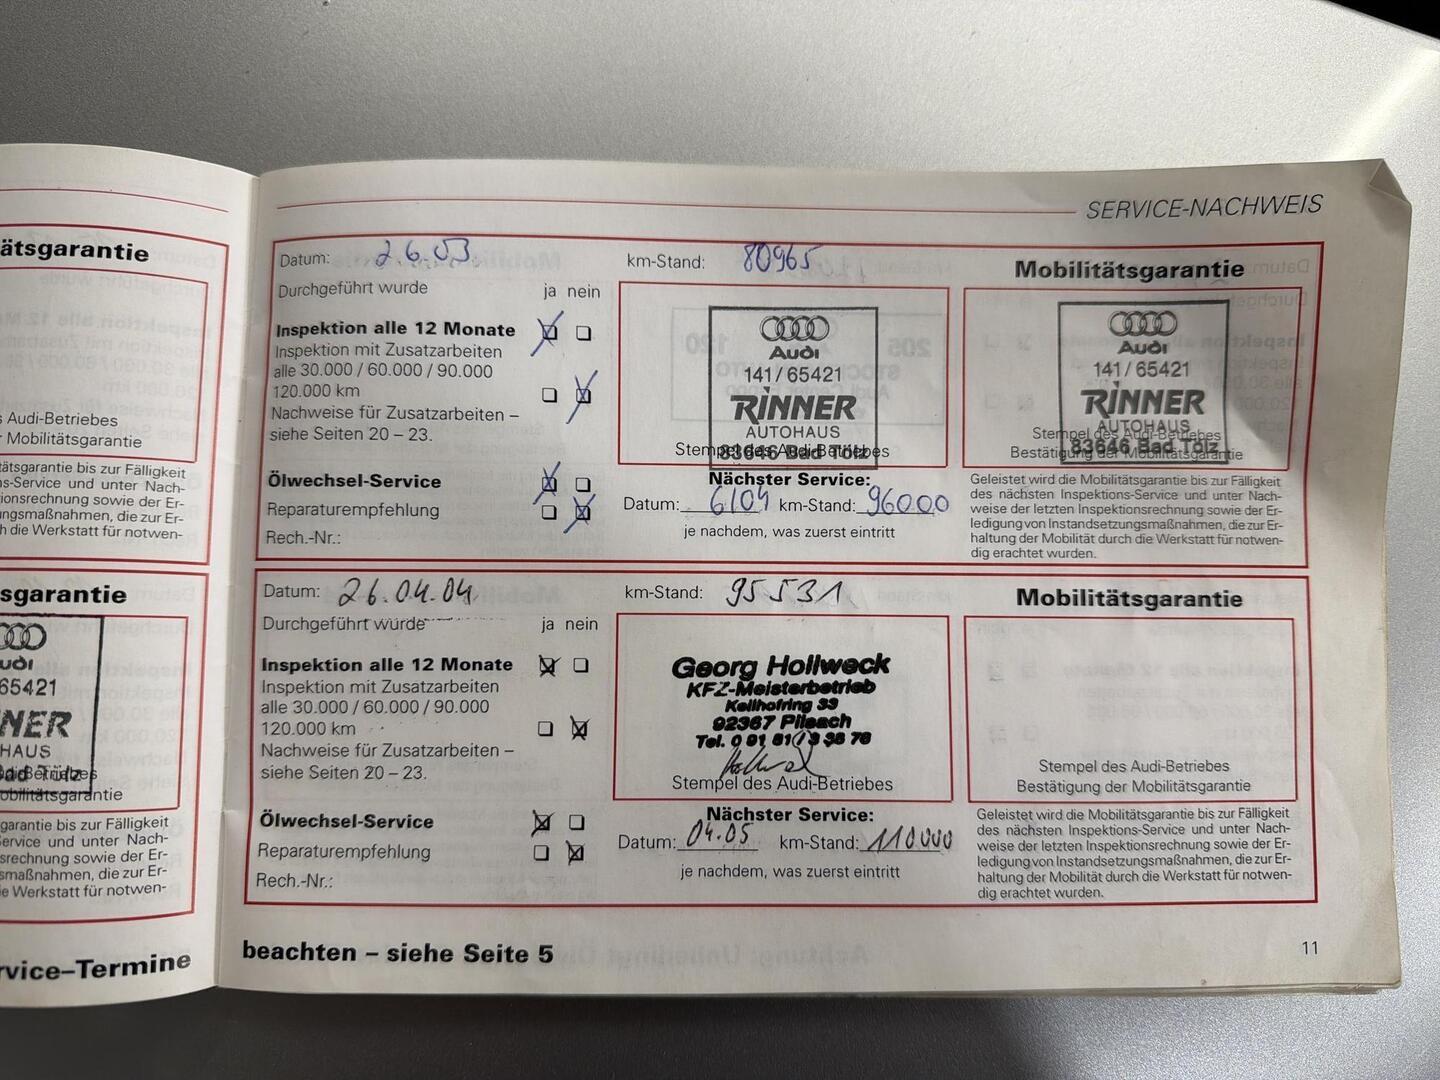 ätsgarantie
s Audi-Betriebes
r Mobilitätsgarantie
tätsgarantie bis zur Fälligkeit
ns-Service und unter Nach-
tionsrechnung sowie der Er-
ungsmaßnahmen, die zur Er-
h die Werkstatt für notwen-
sgarantie
udi
65421
NER
HAUS
Bad Tölz
udi-Betriebes
obilitätsgarantie
garantie bis zur Fälligkeit
Service und unter Nach-
srechnung sowie der Er-
smaßnahmen, die zur Er-
ie Werkstatt für notwen-
rvice–Termine
SERVICE-NACHWEIS
Datum: 26.03.
km-Stand: 80965
Mobilitätsgarantie
Durchgeführt wurde ja nein
Inspektion alle 12 Monate
Inspektion mit Zusatzarbeiten
alle 30.000 / 60.000 / 90.000
120.000 km
Nachweise für Zusatzarbeiten –
siehe Seiten 20 – 23.
Ölwechsel-Service
Reparaturempfehlung
Rech.-Nr.:
Audi
141/65421
RINNER
AUTOHAUS
Stempel des Audi-Betriebes
83646 Bad Tölz
Nächster Service:
Datum: 6104 km-Stand: 96000
je nachdem, was zuerst eintritt
Audi
141/65421
RINNER
AUTOHAUS
Stempel des Audi-Betriebes
83646 Bad Tölz
Bestätigung der Mobilitätsgarantie
Geleistet wird die Mobilitätsgarantie bis zur Fälligkeit
des nächsten Inspektions-Service und unter Nach-
weise der letzten Inspektionsrechnung sowie der Er-
ledigung von Instandsetzungsmaßnahmen, die zur Er-
haltung der Mobilität durch die Werkstatt für notwen-
dig erachtet wurden.
Datum: 26.04.04
km-Stand: 95531
Mobilitätsgarantie
Durchgeführt wurde ja nein
Inspektion alle 12 Monate
Inspektion mit Zusatzarbeiten
alle 30.000 / 60.000 / 90.000
120.000 km
Nachweise für Zusatzarbeiten –
siehe Seiten 20 – 23.
Ölwechsel-Service
Reparaturempfehlung
Rech.-Nr.:
Georg Hollweck
KFZ-Meisterbetrieb
Kellhofring 33
92367 Pilsach
Tel. 0 91 81
Stempel des Audi-Betriebes
Nächster Service:
Datum: 04.05 km-Stand: 110000
je nachdem, was zuerst eintritt
Stempel des Audi-Betriebes
Bestätigung der Mobilitätsgarantie
Geleistet wird die Mobilitätsgarantie bis zur Fälligkeit
des nächsten Inspektions-Service und unter Nach-
weise der letzten Inspektionsrechnung sowie der Er-
ledigung von Instandsetzungsmaßnahmen, die zur Er-
haltung der Mobilität durch die Werkstatt für notwen-
dig erachtet wurden.
beachten – siehe Seite 5
11